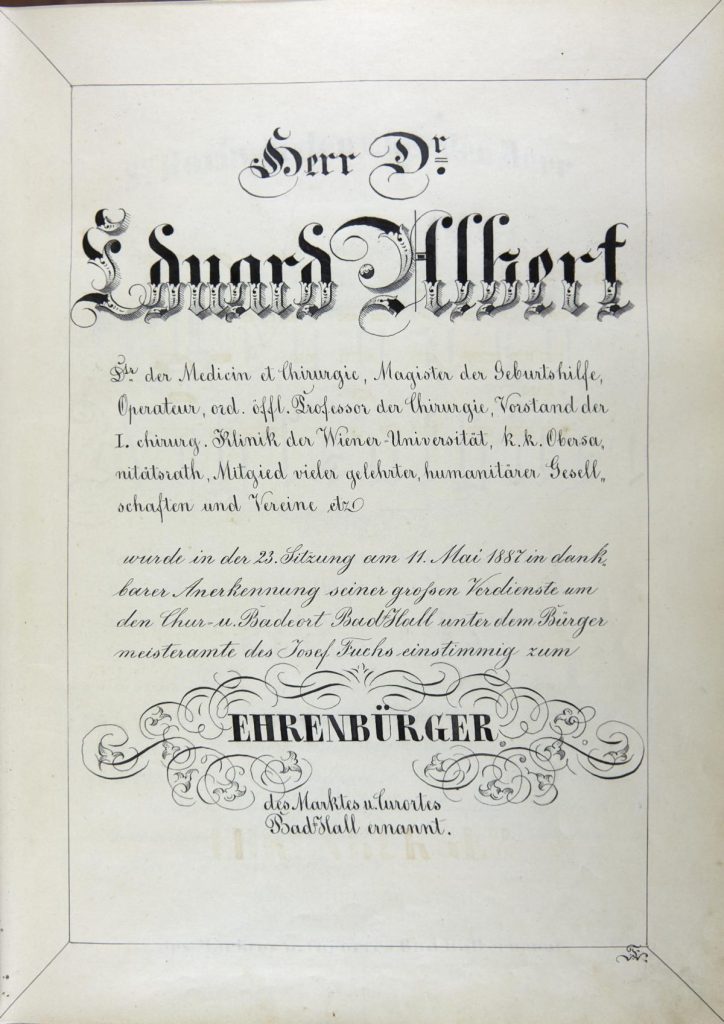 Herr Dr.
Eduard Albert
Dtr der Medicin et Chirurgie, Magister der Geburtshilfe,
Operateur, ord. öffl. Professor der Chirurgie, Vorstand der
I. chirurg. Klinik der Wiener-Universität, k. k. Obersa„
nitätsrath, Mitgied vieler gelehrter, humanitärer Gesell„
schaften und Vereine etz
wurde in der 23. Sitzung am 11. Mai 1887 in dank„
barer Anerkennung seiner großen Verdienste um
den Chur- u. Badeort Bad Hall unter dem Bürger
meisteramte des Josef Fuchs einstimmig zum
EHRENBÜRGER
des Marktes u. Curortes
Bad Hall ernannt.